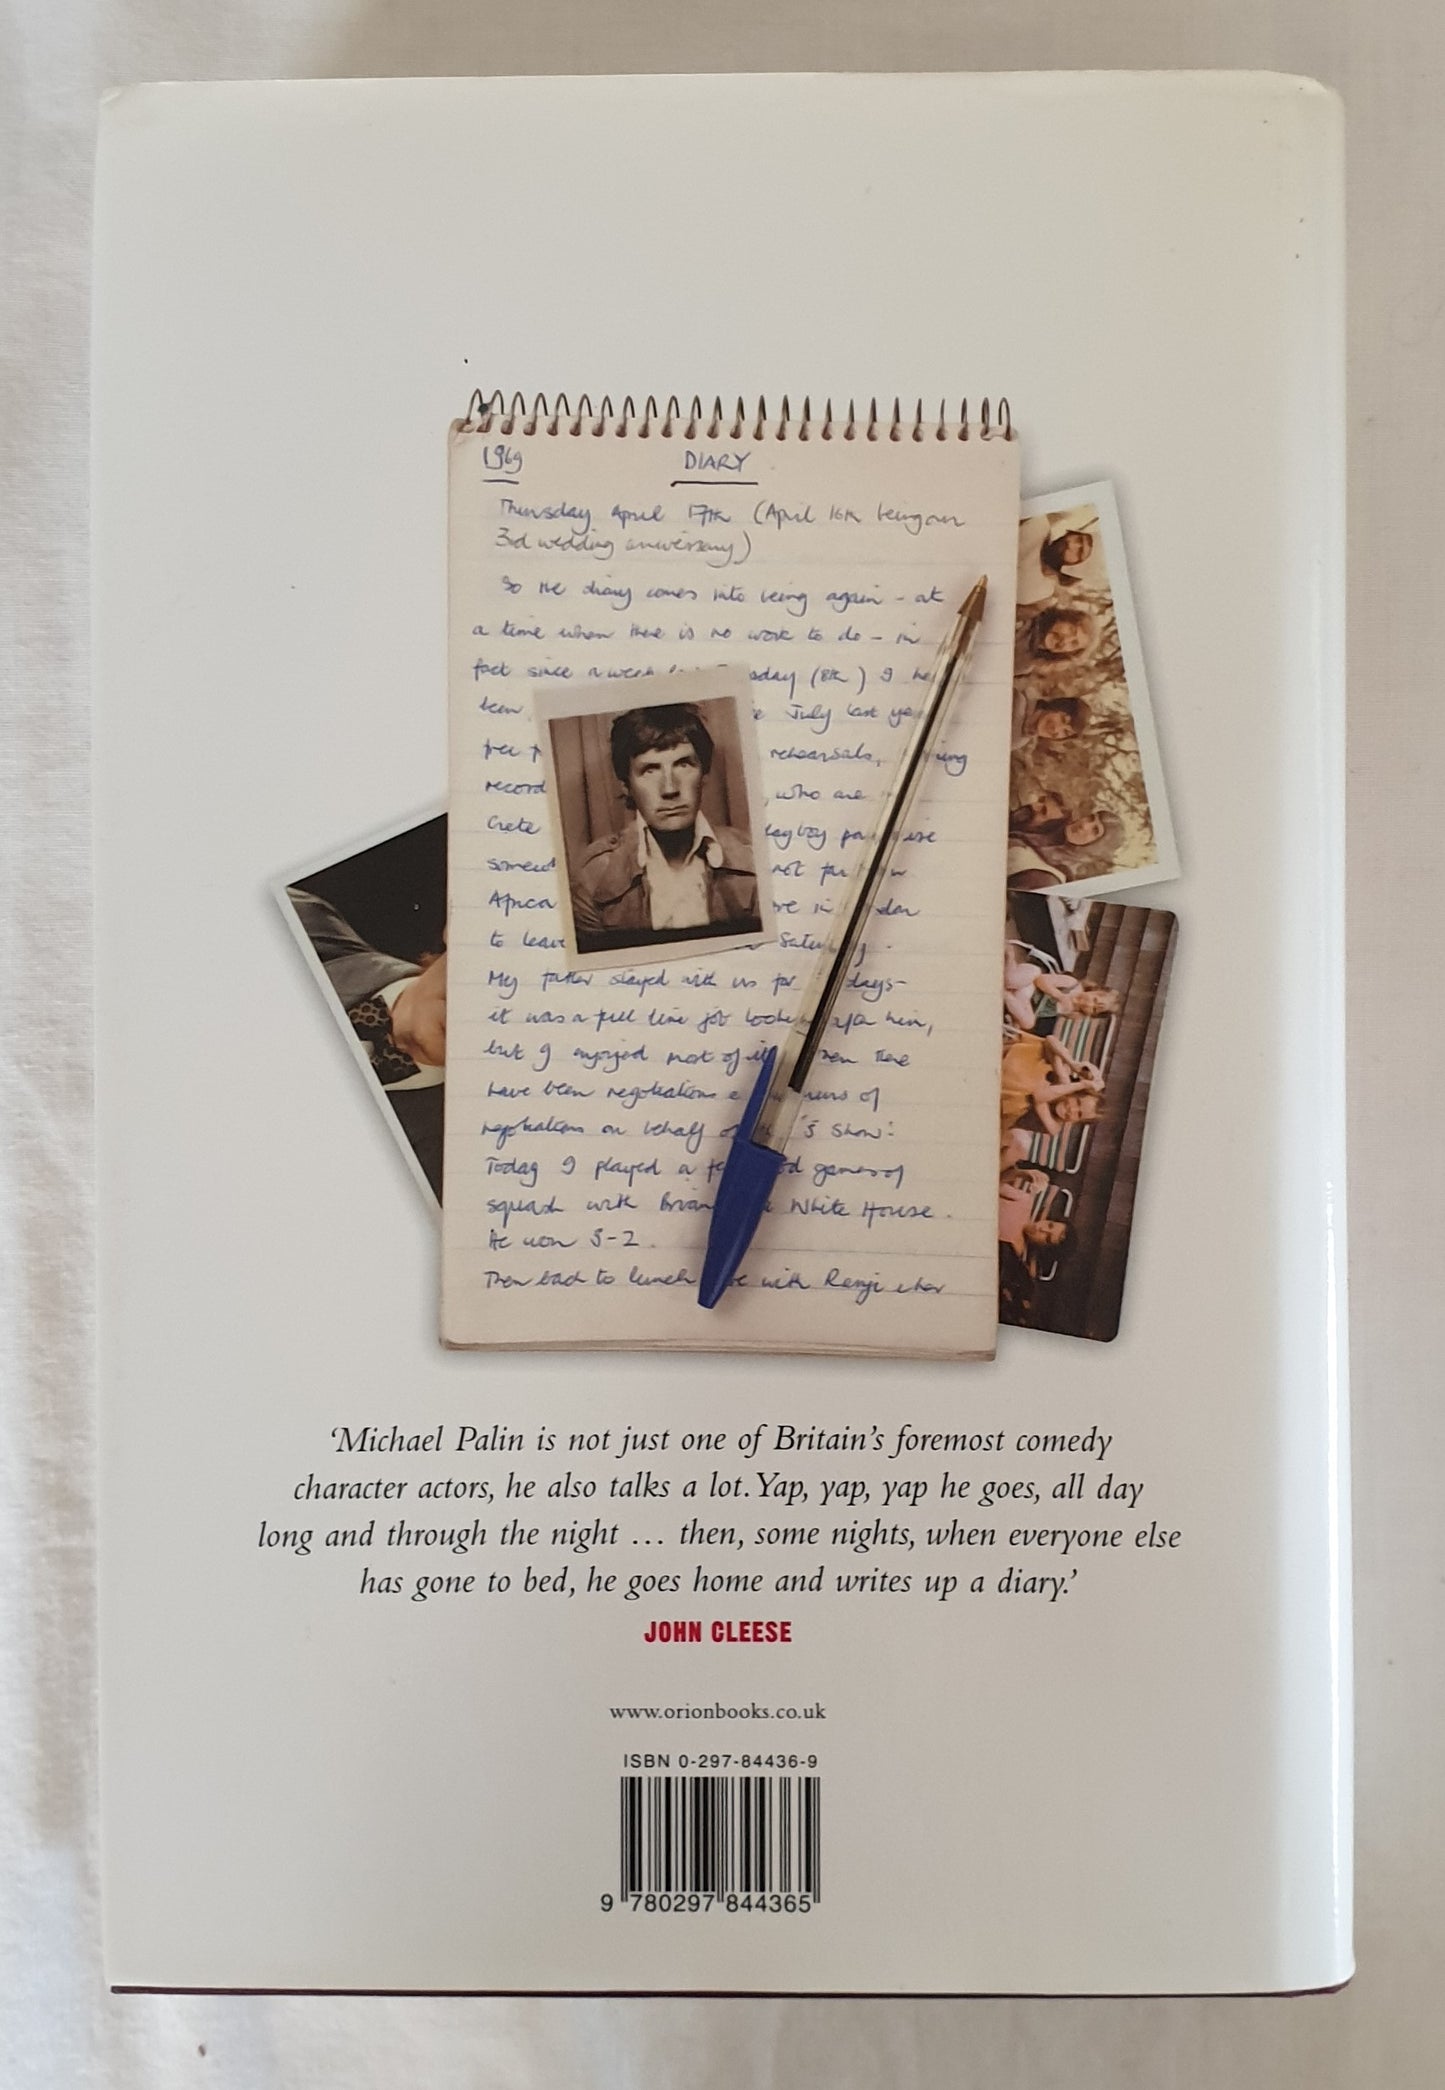 1969 DIARY
Thursday April 17th (April 16th being our
3rd wedding anniversary)
So the diary comes into being again - at
a time when there is no work to do - in
fact since a week sday (8th) I
been July last
free rehearsals,
record , who are
Crete
somew not far
Africa in
to leave Saturday.
My father stayed with us for days-
it was a full time job looking after him,
but I enjoyed most of it Then there
have been negotiations of
negotiations on behalf of 's Show'.
Today I played a games of
squash with Brian White House.
He won 3-2.
Then back to lunch with Ranji
'Michael Palin is not just one of Britain's foremost comedy
character actors, he also talks a lot. Yap, yap, yap he goes, all day
long and through the night … then, some nights, when everyone else
has gone to bed, he goes home and writes up a diary.'
JOHN CLEESE
www.orionbooks.co.uk
ISBN 0-297-84436-9
9 780297 844365